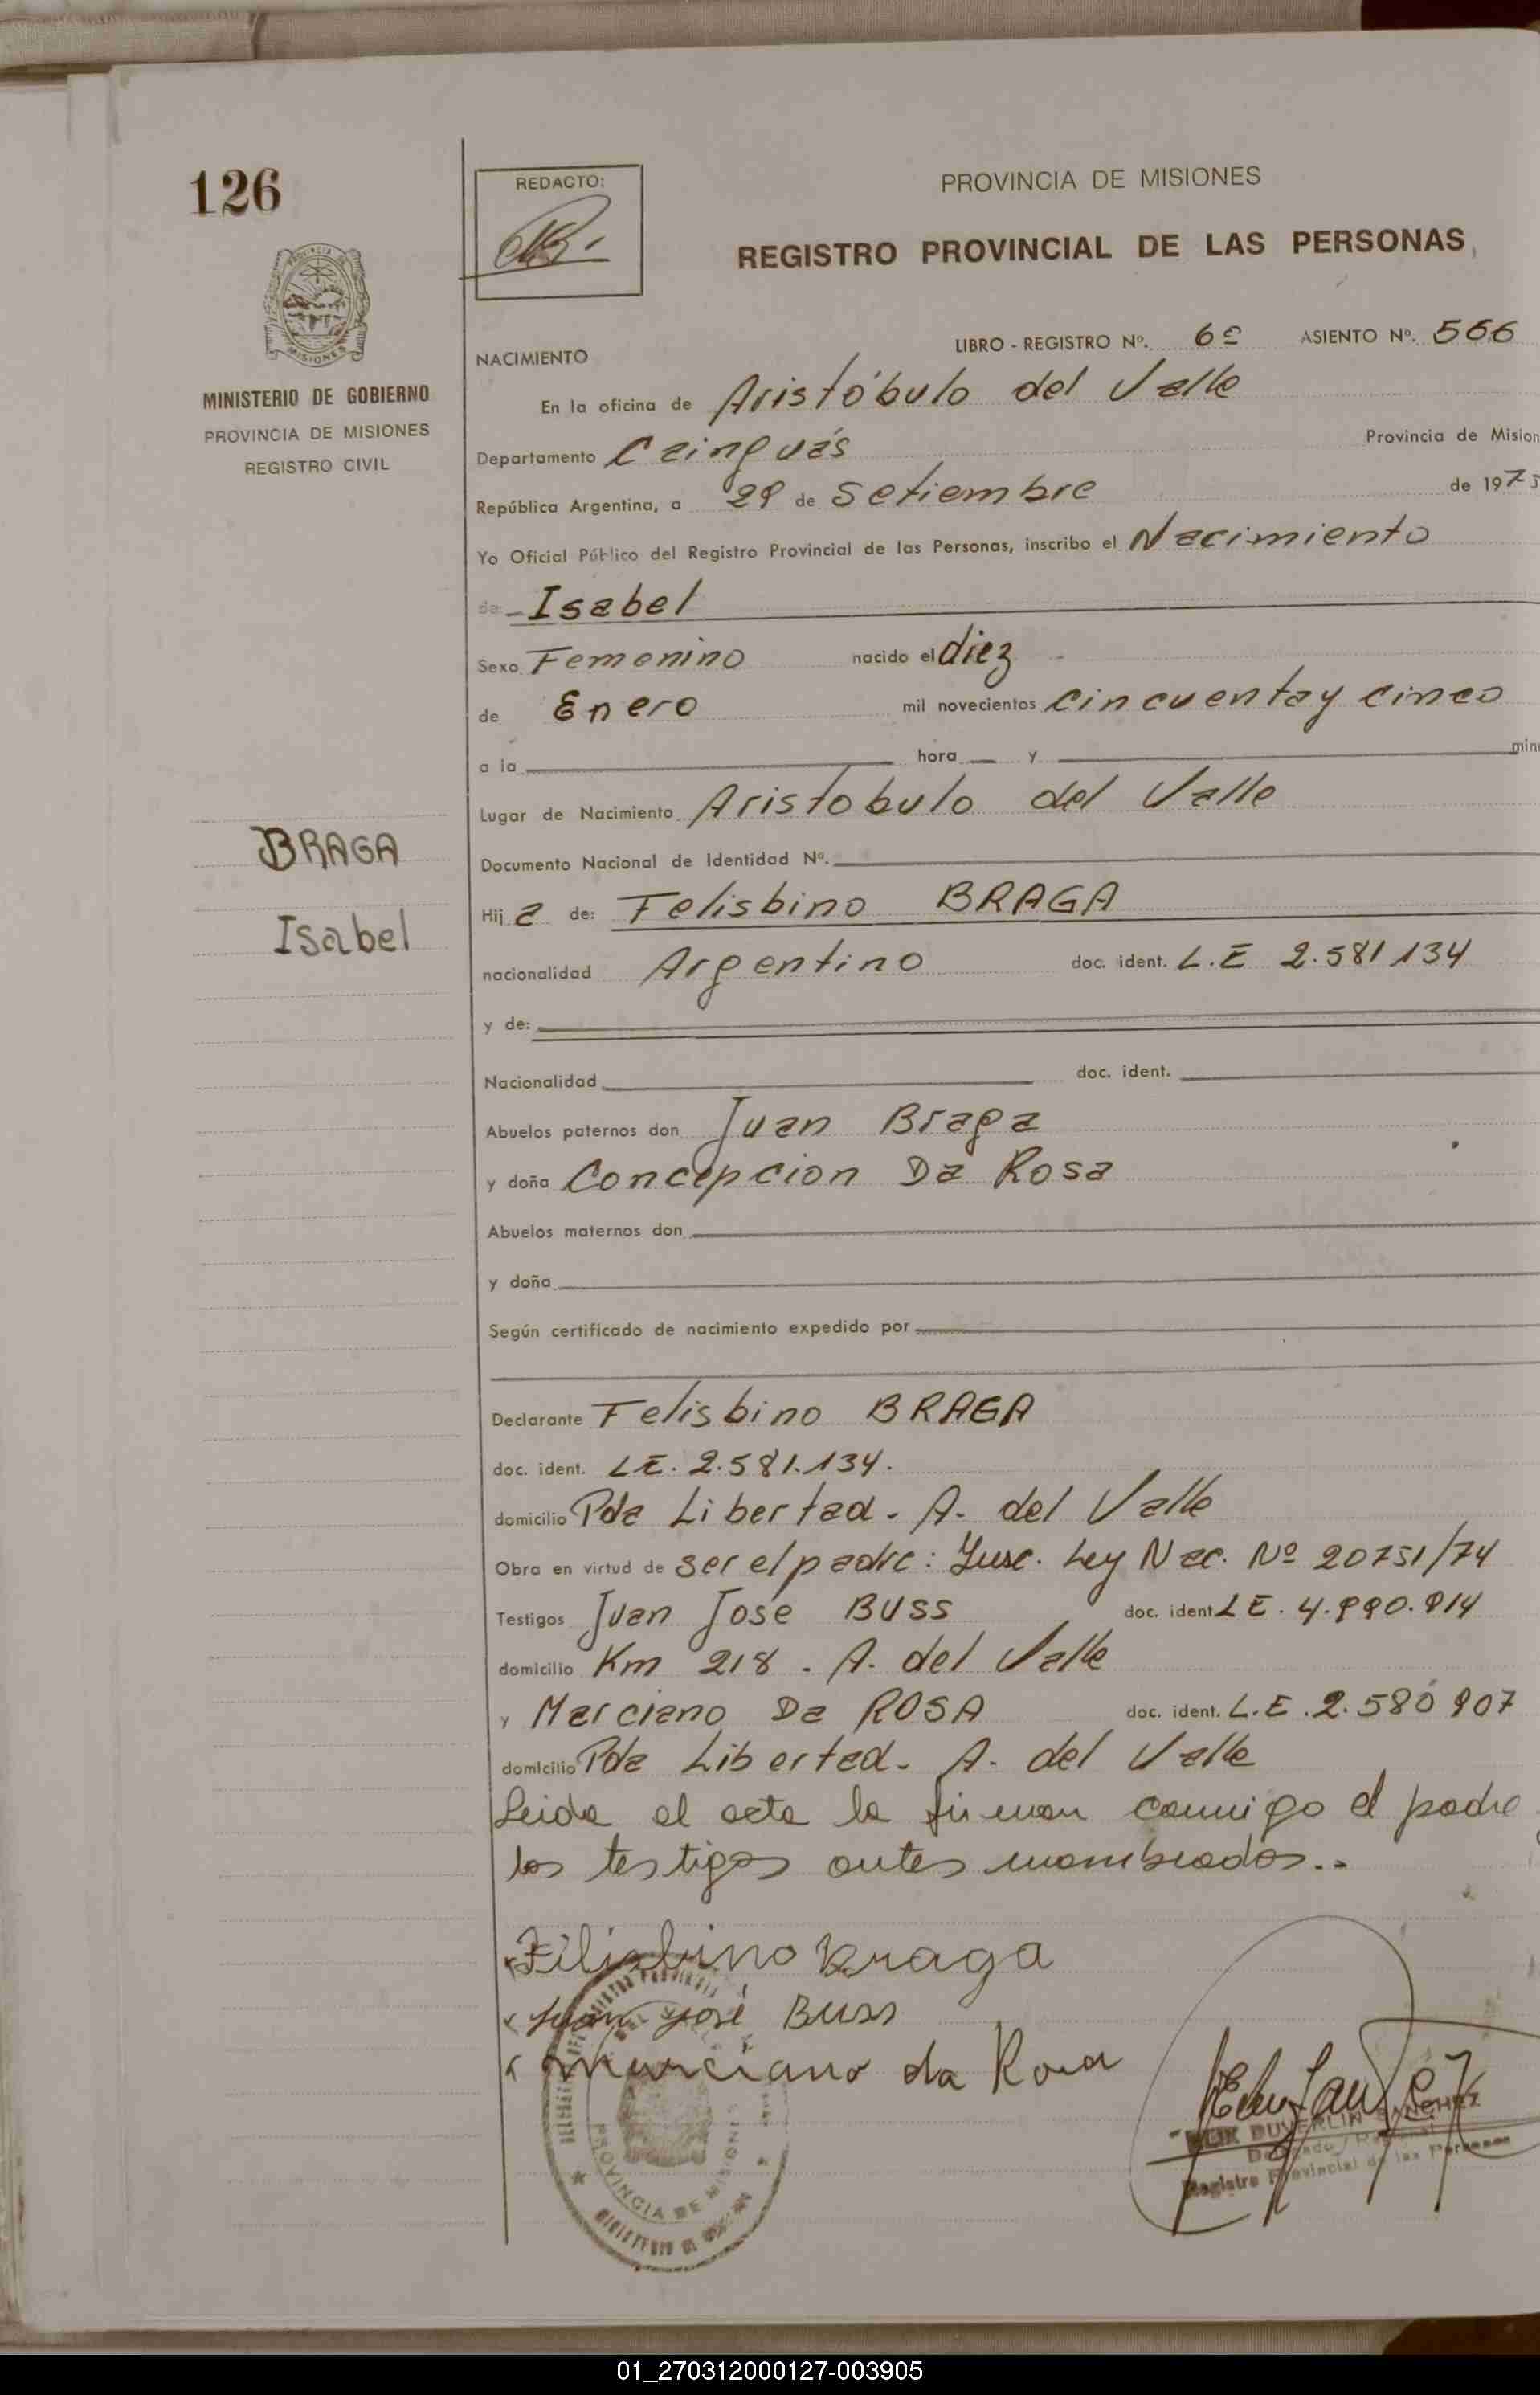 126
REDACTO:
PROVINCIA DE MISIONES
REGISTRO PROVINCIAL DE LAS PERSONAS
MINISTERIO DE GOBIERNO
PROVINCIA DE MISIONES
REGISTRO CIVIL
NACIMIENTO
LIBRO - REGISTRO Nº. 6º ASIENTO Nº. 566
En la oficina de Aristóbulo del Valle
Departamento Cainguás Provincia de Mision
República Argentina, a 29 de Setiembre de 1975
Yo Oficial Público del Registro Provincial de las Personas, inscribo el Nacimiento
de Isabel
Sexo Femenino nacido el diez
de Enero mil novecientos cincuenta y cinco
a la hora y minu
Lugar de Nacimiento Aristobulo del Valle
Documento Nacional de Identidad Nº.
BRAGA
Isabel
Hij a de: Felisbino BRAGA
nacionalidad Argentino doc. ident. L.E 2.581.134
y de:
Nacionalidad doc. ident.
Abuelos paternos don Juan Braga
y doña Concepcion Da Rosa
Abuelos maternos don
y doña
Según certificado de nacimiento expedido por
Declarante Felisbino BRAGA
doc. ident. LE. 2.581.134.
domicilio Pda Libertad. A. del Valle
Obra en virtud de ser el padre: Insc. Ley Nac. Nº 20751/74
Testigos Juan José BUSS doc. ident LE. 4.990.914
domicilio Km 218. A. del Valle
y Marciano Da ROSA doc. ident. L.E. 2.580 907
domicilio Pda Libertad. A. del Valle
Leida el acta la firman conmigo el padre
los testigos antes nombrados..
Filisbino Braga
Juan José Buss
Murciano da Rosa
DUVERLIN SANCHEZ
Registro Provincial de las Personas
PROVINCIA DE MISIONES
01_270312000127-003905